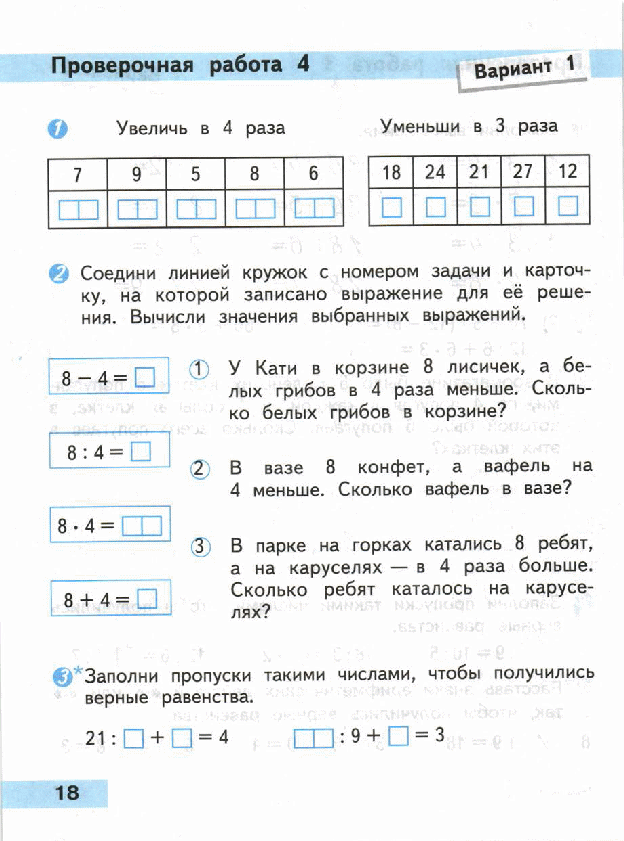 Проверочная работа 4
Вариант 1
1 Увеличь в 4 раза
7 9 5 8 6
Уменьши в 3 раза
18 24 21 27 12
2 Соедини линией кружок с номером задачи и карточ-
ку, на которой записано выражение для её реше-
ния. Вычисли значения выбранных выражений.
8 − 4 = □
8 : 4 = □
8 · 4 = □□
8 + 4 = □
1 У Кати в корзине 8 лисичек, а бе-
лых грибов в 4 раза меньше. Сколь-
ко белых грибов в корзине?
2 В вазе 8 конфет, а вафель на
4 меньше. Сколько вафель в вазе?
3 В парке на горках катались 8 ребят,
а на каруселях — в 4 раза больше.
Сколько ребят каталось на карусе-
лях?
3* Заполни пропуски такими числами, чтобы получились
верные равенства.
21 : □ + □ = 4 □□ : 9 + □ = 3
18